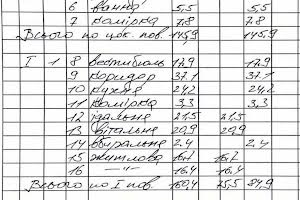 6 ванна 5,5 5,5
7 комірка 7,8 7,8
Всього по цок. пов. 145,9 145,9
I 1 8 вестибюль 17,9 17,9
9 коридор 37,1 37,1
10 кухня 24,2 24,2
11 комірка 3,3 3,3
12 їдальня 21,5 21,5
13 вітальня 20,9 20,9
14 вбиральня 2,4 2,4
15 житлова 16,7 16,7
16 —"— 16,4 16,4
Всього по I пов. 160,4 75,5 84,9